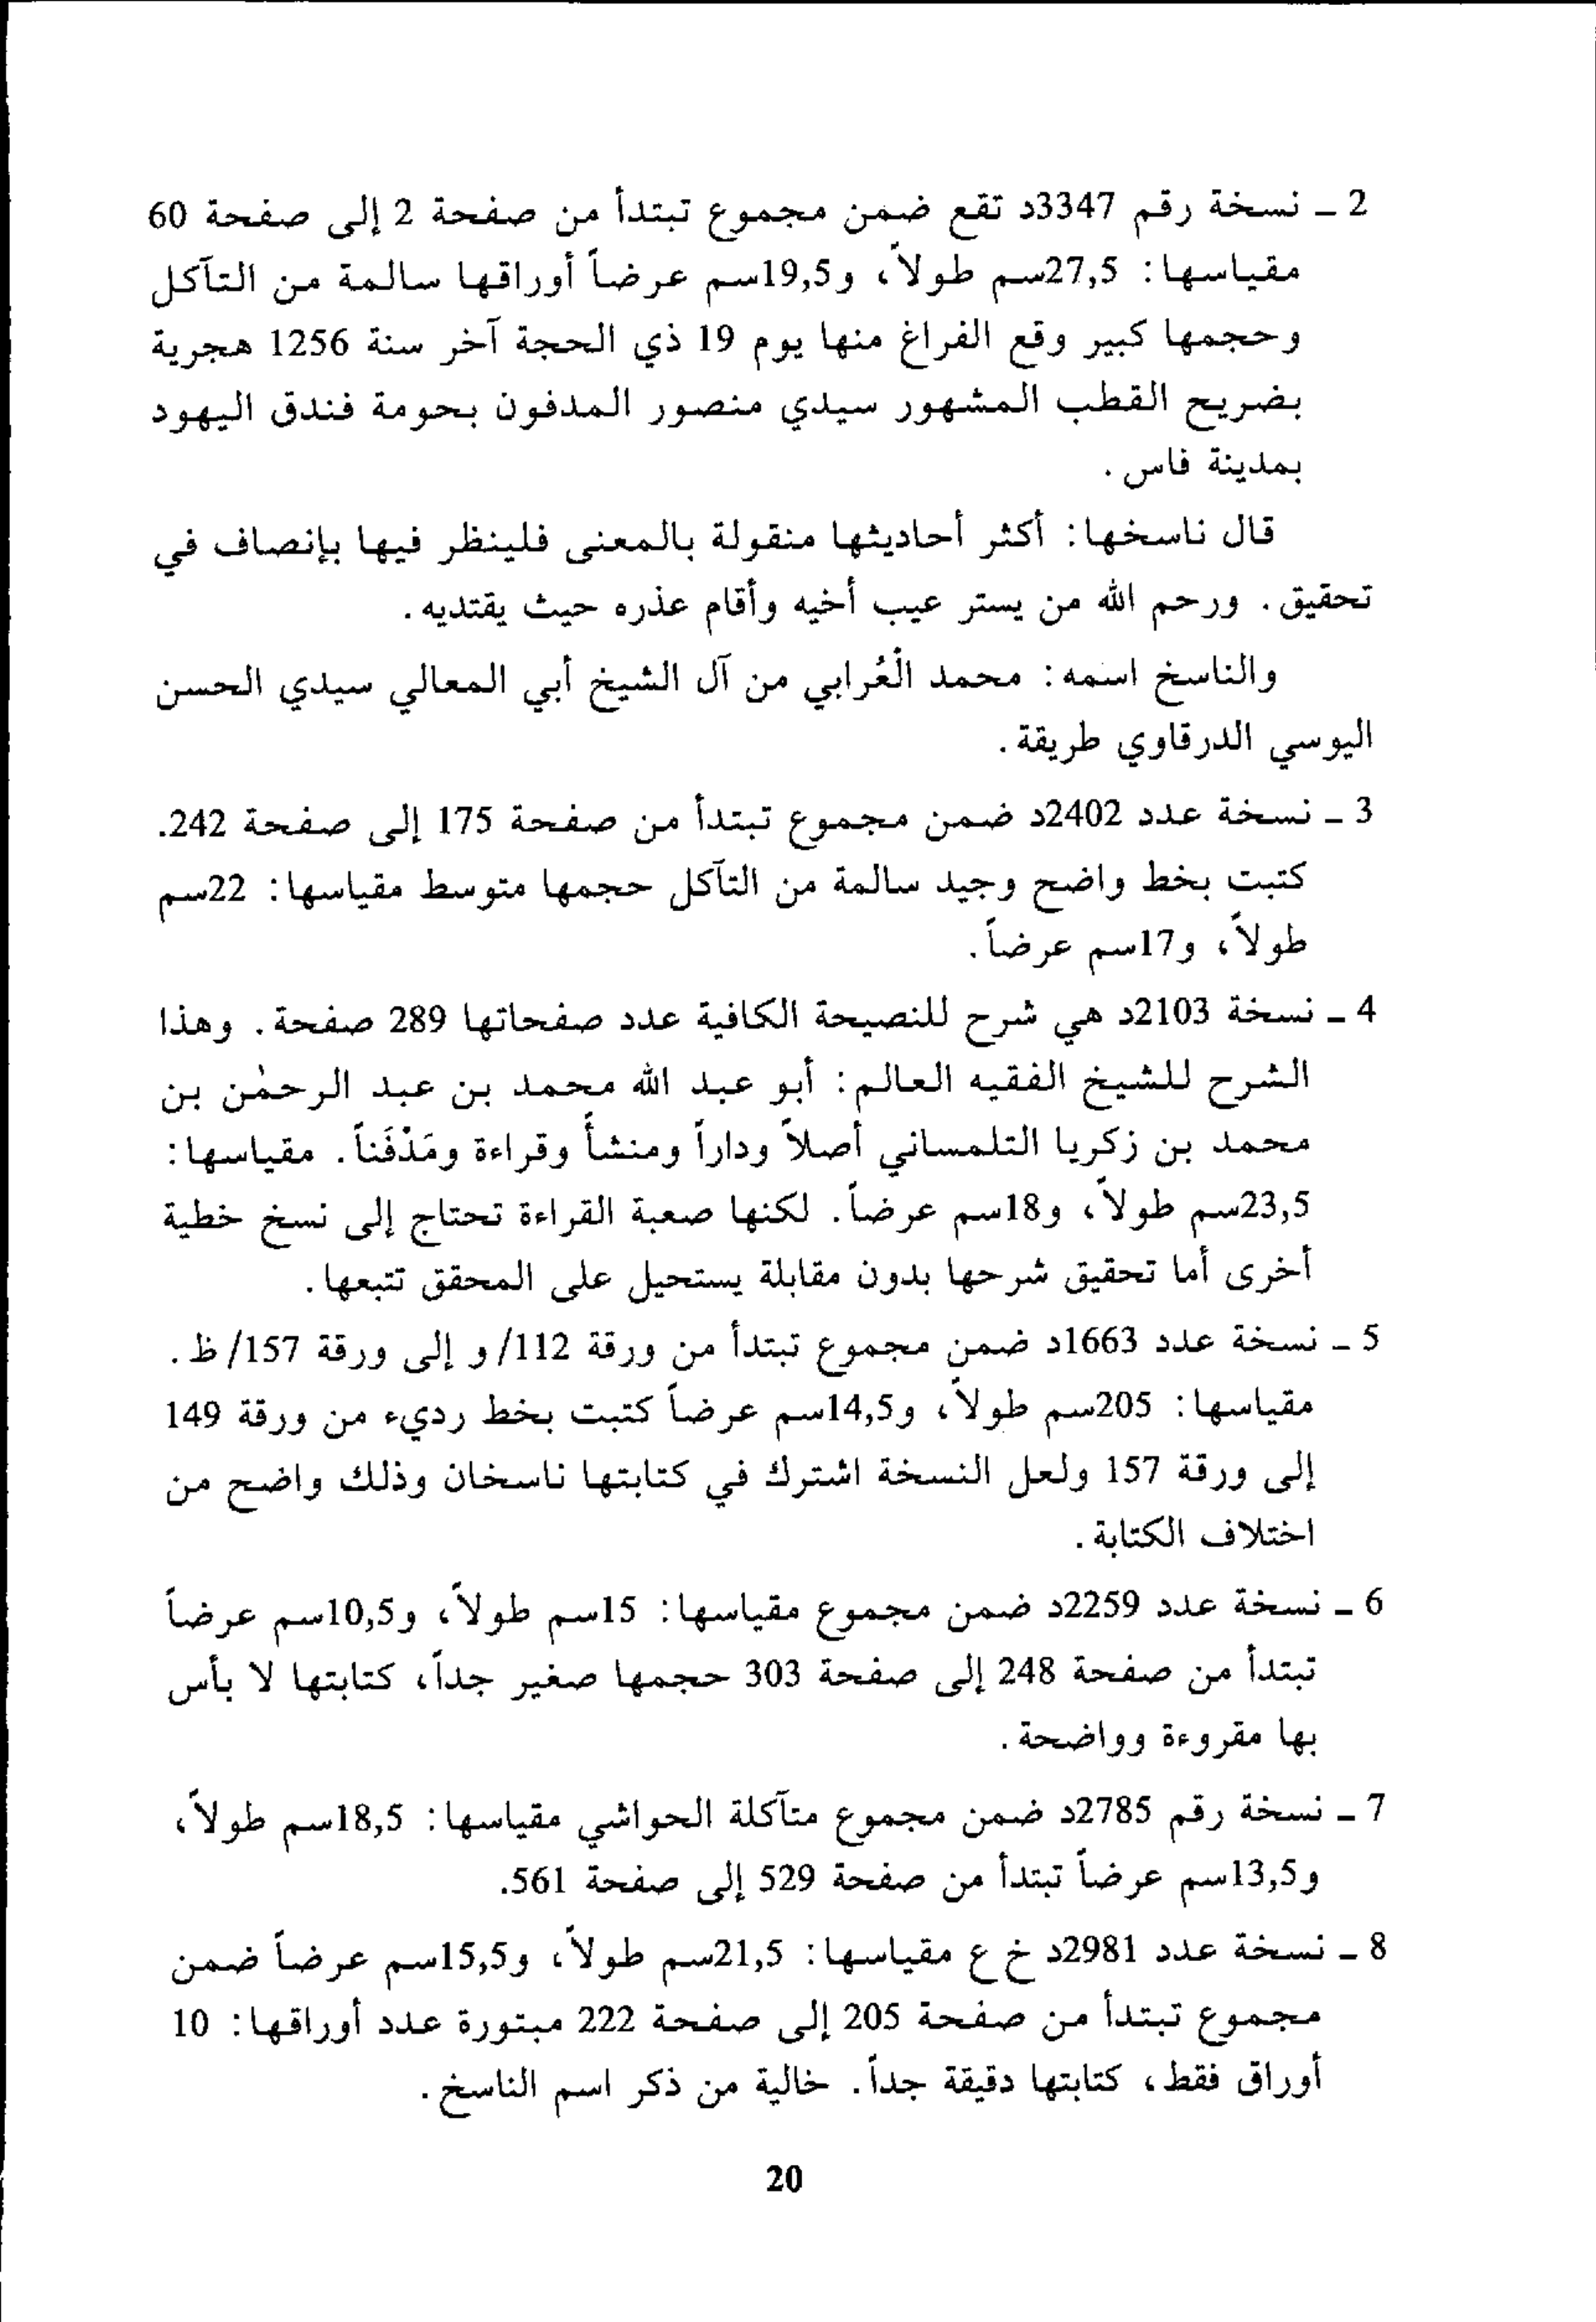 2 ـ نسخة رقم 3347د تقع ضمن مجموع تبتدأ من صفحة 2 إلى صفحة 60
مقياسها: 27,5سم طولاً، و19,5سم عرضاً أوراقها سالمة من التآكل
وحجمها كبير وقع الفراغ منها يوم 19 ذي الحجة آخر سنة 1256 هجرية
بضريح القطب المشهور سيدي منصور المدفون بحومة فندق اليهود
بمدينة فاس.
قال ناسخها: أكثر أحاديثها منقولة بالمعنى فلينظر فيها بإنصاف في
تحقيق. ورحم الله من يستر عيب أخيه وأقام عذره حيث يقتديه.
والناسخ اسمه: محمد الْعُرابي من آل الشيخ أبي المعالي سيدي الحسن
اليوسي الدرقاوي طريقة.
3 ـ نسخة عدد 2402د ضمن مجموع تبتدأ من صفحة 175 إلى صفحة 242.
كتبت بخط واضح وجيد سالمة من التآكل حجمها متوسط مقياسها: 22سم
طولاً، و17سم عرضاً.
4 ـ نسخة 2103د هي شرح للنصيحة الكافية عدد صفحاتها 289 صفحة. وهذا
الشرح للشيخ الفقيه العالم: أبو عبد الله محمد بن عبد الرحمٰن بن
محمد بن زكريا التلمساني أصلاً وداراً ومنشأً وقراءة ومَدْفَناً. مقياسها:
23,5سم طولاً، و18سم عرضاً. لكنها صعبة القراءة تحتاج إلى نسخ خطية
أخرى أما تحقيق شرحها بدون مقابلة يستحيل على المحقق تتبعها.
5 ـ نسخة عدد 1663د ضمن مجموع تبتدأ من ورقة 112/و إلى ورقة 157/ظ.
مقياسها: 205سم طولاً، و14,5سم عرضاً كتبت بخط رديء من ورقة 149
إلى ورقة 157 ولعل النسخة اشترك في كتابتها ناسخان وذلك واضح من
اختلاف الكتابة.
6 ـ نسخة عدد 2259د ضمن مجموع مقياسها: 15سم طولاً، و10,5سم عرضاً
تبتدأ من صفحة 248 إلى صفحة 303 حجمها صغير جداً، كتابتها لا بأس
بها مقروءة وواضحة.
7 ـ نسخة رقم 2785د ضمن مجموع متآكلة الحواشي مقياسها: 18,5سم طولاً،
و13,5سم عرضاً تبتدأ من صفحة 529 إلى صفحة 561.
8 ـ نسخة عدد 2981د خ ع مقياسها: 21,5سم طولاً، و15,5سم عرضاً ضمن
مجموع تبتدأ من صفحة 205 إلى صفحة 222 مبتورة عدد أوراقها: 10
أوراق فقط، كتابتها دقيقة جداً. خالية من ذكر اسم الناسخ.
20